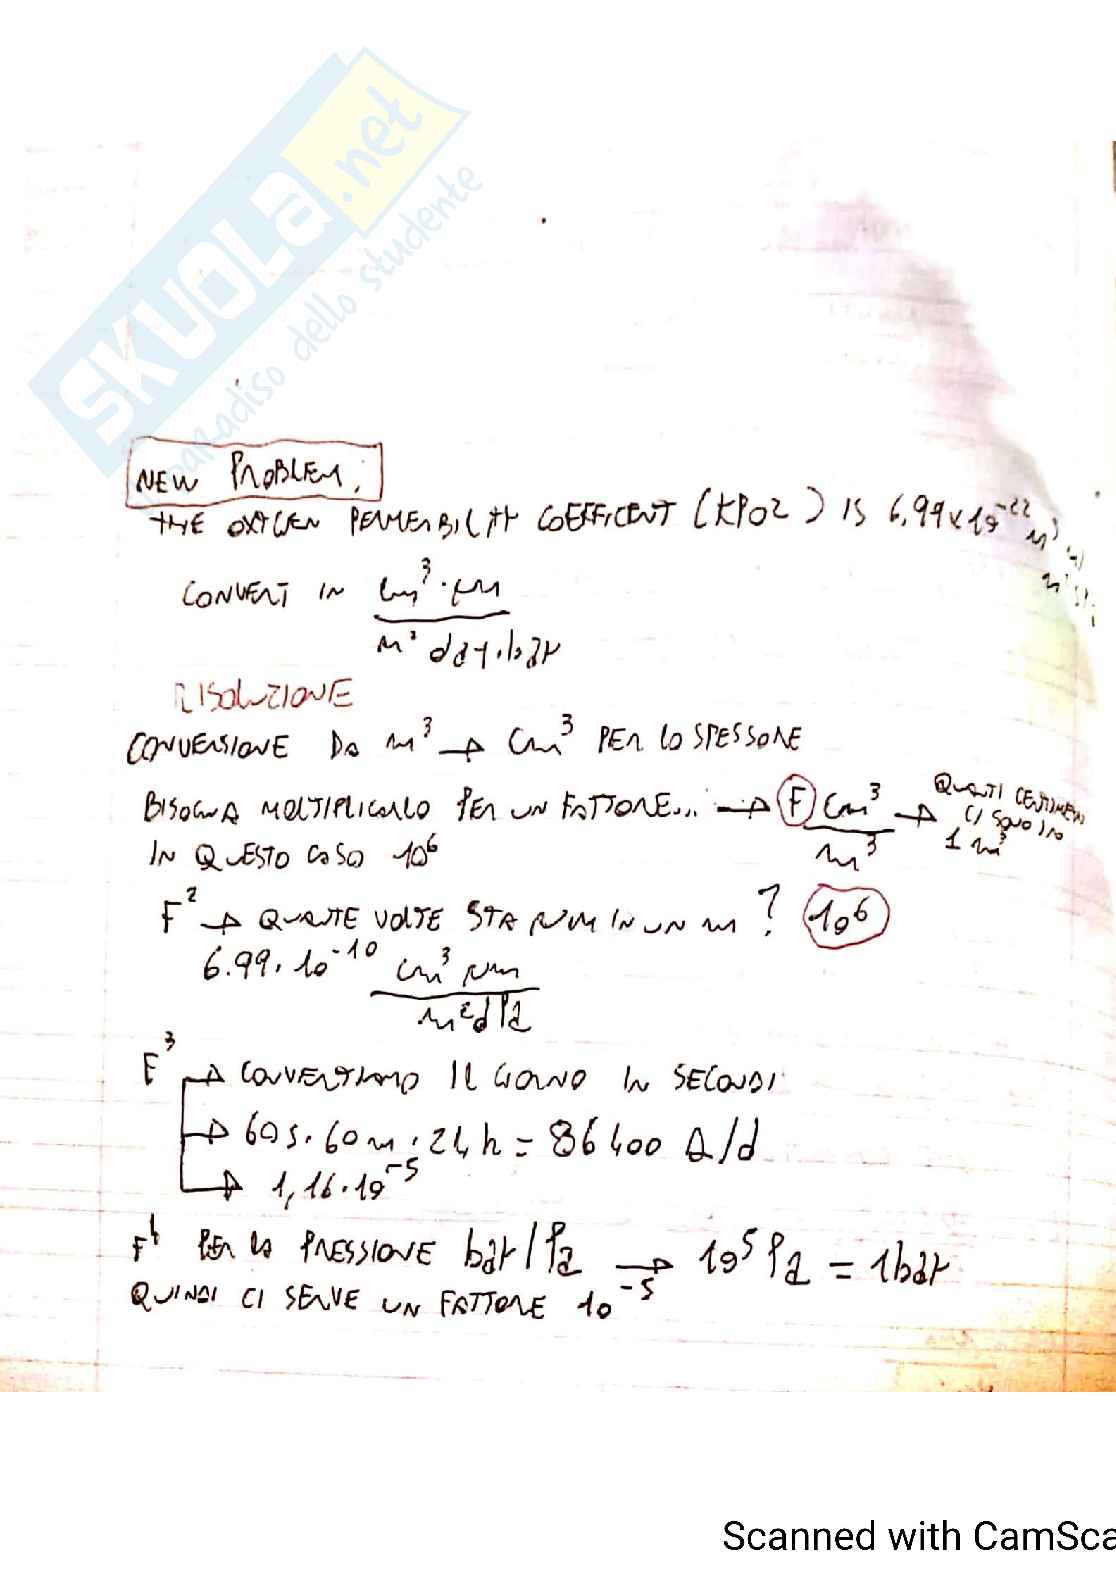 SKUOLA.net
paradiso dello studente
NEW PROBLEM:
THE OXYGEN PERMEABILITY COEFFICENT (KPO2) IS 6,99 x 10⁻²² m³
CONVERT IN cm³·µm / m² day·bar
RISOLUZIONE
CONVERSIONE DA m³ → cm³ PER LO SPESSORE
BISOGNA MOLTIPLICARLO PER UN FATTORE... → F cm³ / m³ → QUANTI CENTIMETRI CI SONO IN 1 m³
IN QUESTO CASO 10⁶
F² → QUANTE VOLTE STA µM IN UN m? 10⁶
6.99·10⁻¹⁰ cm³ µm / m² d Pa
F³ → CONVERTIAMO IL GIORNO IN SECONDI
→ 60s·60m·24h = 86400 s/d
→ 1,16·10⁻⁵
F⁴ PER LA PRESSIONE bar/Pa → 10⁵ Pa = 1bar
QUINDI CI SERVE UN FATTORE 10⁻⁵
Scanned with CamSca